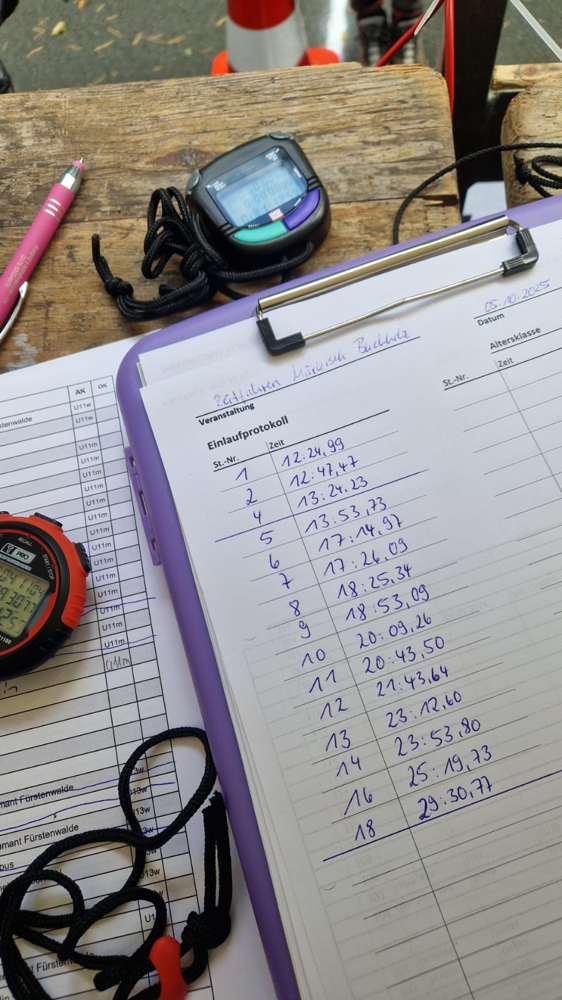 05.10.2025
Datum
Zeitfahren Märkisch Buchholz
Veranstaltung
Altersklasse
Einlaufprotokoll
St.-Nr. Zeit
St.-Nr. Zeit
1 12:24,99
2 12:47,47
4 13:24.23
5 13:53,73
6 17:14,97
7 17:26,09
8 18:25,34
9 18:53,09
10 20:09,26
11 20:43,50
12 21:43,64
13 23:12,60
14 23:53,80
16 25:19,73
18 29:30,77
AK OK
U11w
stenwalde U11w
U11m
U11m
U11m
U11m
U11m
U11m
U11m
U11m
U11m
U11m
U11m
U11m
RECALL
START / STOP
PRO
mant Fürstenwalde
amant Fürstenwalde
tbus
U13w
t Fürstenwalde